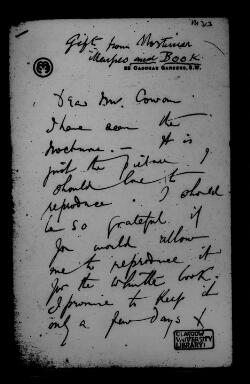 M 313
Gift from Mortimer
Menpes and Book
25 CADOGAN GARDENS, S.W.
Dear Mr. Cowan
I have seen the
Nocturne. — It is
just the picture I
should love to
reproduce. I should
be so grateful if
you would allow
me to reproduce it
for the Whistler book.
I promise to keep it
only a few days X
GLASGOW
UNIVERSITY
LIBRARY